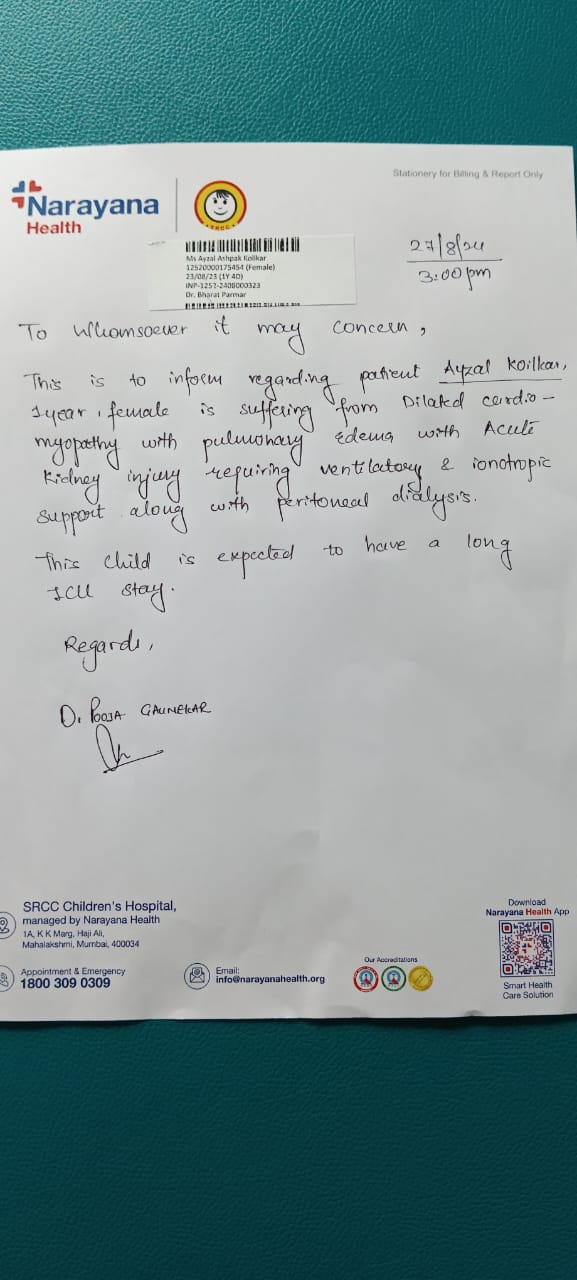 Stationery for Billing & Report Only
Narayana
Health
SRCC
Ms Ayzal Ashpak Koilkar
12520000175454 (Female)
23/08/23 (1Y 4D)
INP-1252-2408000323
Dr. Bharat Parmar
27/8/24
3:00pm
To Whomsoever it may concern,
This is to inform regarding patient Ayzal Koilkar,
1year, female is suffering from Dilated cardio-
myopathy with pulmonary Edema with Acute
Kidney injury requiring ventilatory & ionotropic
support along with peritoneal dialysis.
This child is expected to have a long
ICU stay.
Regards,
Dr POOJA GAUNEKAR
SRCC Children's Hospital,
managed by Narayana Health
1A, K K Marg, Haji Ali,
Mahalakshmi, Mumbai, 400034
Appointment & Emergency
1800 309 0309
Email:
info@narayanahealth.org
Our Accreditations
Download
Narayana Health App
Smart Health
Care Solution